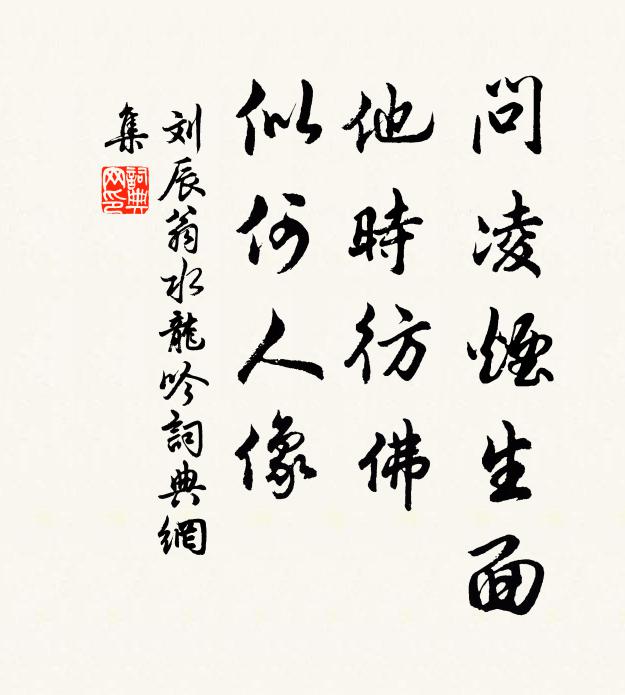 問凌煙生面
他時彷佛
似何人像
刘辰翁水龍吟詞典網
集
詞典网印